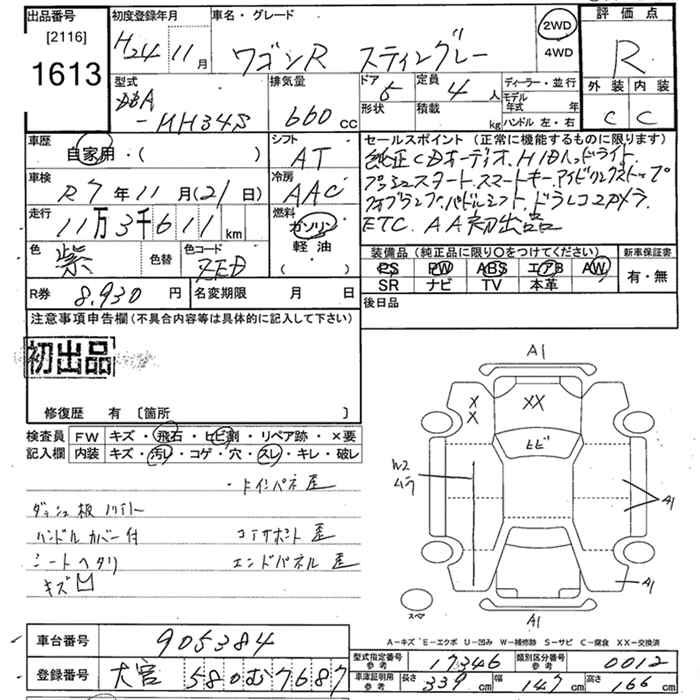 出品番号
[2116]
1613
初度登録年月
H24年11月
車名・グレード
ワゴンR スティングレー
2WD
4WD
評価点
R
外装 内装
C C
型式
DBA
-MH34S
排気量
660cc
ドア
5
形状
定員
4人
積載
kg
ディーラー・並行
モデル年式 年
ハンドル 左・右
車歴
自家用・( )
シフト
AT
車検
R7年11月(21日)
冷房
AAC
走行
11万3千611km
燃料
ガソリン
軽油
( )
色
紫
色替
色コード
ZED
R券 8,930円
名変期限 月 日
セールスポイント(正常に機能するものに限ります)
純正CDオーディオ、HIDヘッドライト、
プッシュスタート、スマートキー、アイドリングストップ
フォグランプ、パドルシフト、ドラレコ、カメラ、
ETC、AA初出品
装備品(純正品に限り〇をつけてください)
新車保証書
PS PW ABS エアB AW
SR ナビ TV 本革
有・無
後日品
注意事項申告欄(不具合内容等は具体的に記入して下さい)
初出品
修復歴 有 [箇所 ]
検査員記入欄
FW キズ・飛石・ヒビ割・リペア跡・×要
内装 キズ・汚レ・コゲ・穴・スレ・キレ・破レ
・ドインパネ歪
ダッシュ板
ハンドルカバー付
コアサポート歪
シートヘタリ
エンドパネル歪
キズ凹
A1
X
X
XX
ヒビ
W2
ムラ
A1
A1
スペア
A1
A-キズ E-エクボ U-凹み W-補修跡 S-サビ C-腐食 XX-交換済
車台番号 905384
登録番号 大宮 580 む 7687
型式指定番号 参考 17346
類別区分番号 参考 0012
車庫証明用 参考 長さ 339cm 幅 147cm 高さ 166cm